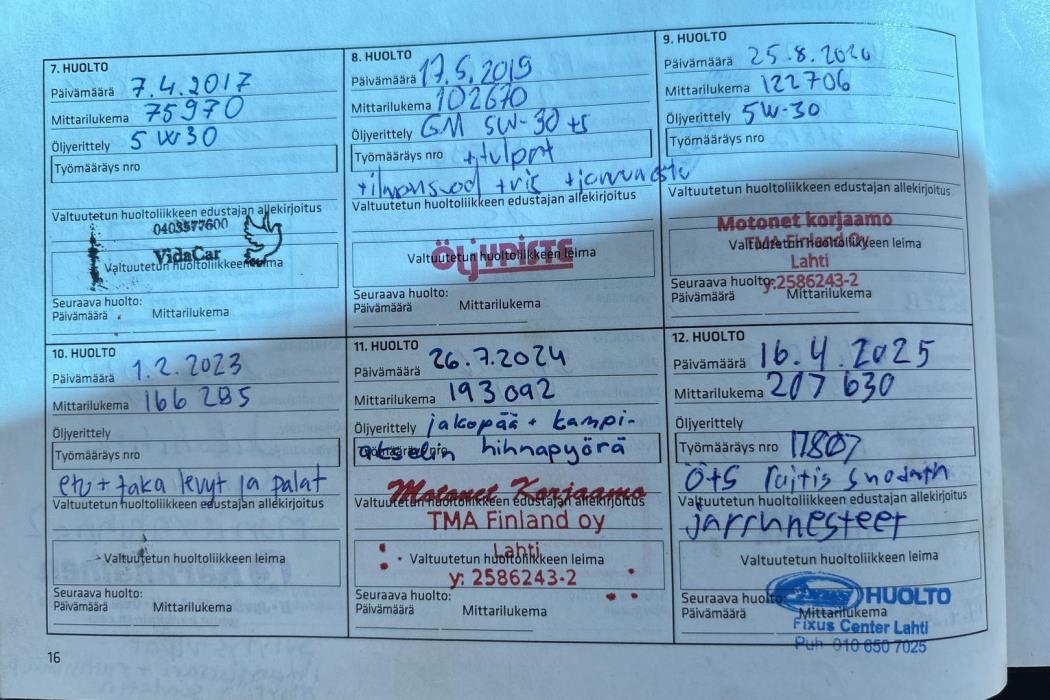 7. HUOLTO
Päivämäärä 7.4.2017
Mittarilukema 75970
Öljyerittely 5W30
Työmääräys nro
Valtuutetun huoltoliikkeen edustajan allekirjoitus
0403577600
VidaCar
Valtuutetun huoltoliikkeen leima
Seuraava huolto:
Päivämäärä Mittarilukema
8. HUOLTO
Päivämäärä 17.5.2019
Mittarilukema 102670
Öljyerittely GM 5W-30 +s
Työmääräys nro +tulpat
+ilmansuod +ris +jarruneste
Valtuutetun huoltoliikkeen edustajan allekirjoitus
ÖljYPISTE
Valtuutetun huoltoliikkeen leima
Seuraava huolto:
Päivämäärä Mittarilukema
9. HUOLTO
Päivämäärä 25.8.2020
Mittarilukema 122706
Öljyerittely 5W-30
Työmääräys nro
Valtuutetun huoltoliikkeen edustajan allekirjoitus
Motonet korjaamo
TMA Finland Oy
Valtuutetun huoltoliikkeen leima
Lahti
y:2586243-2
Seuraava huolto:
Päivämäärä Mittarilukema
10. HUOLTO
Päivämäärä 1.2.2023
Mittarilukema 166285
Öljyerittely
Työmääräys nro
etu + taka levyt ja palat
Valtuutetun huoltoliikkeen edustajan allekirjoitus
Valtuutetun huoltoliikkeen leima
Seuraava huolto:
Päivämäärä Mittarilukema
11. HUOLTO
Päivämäärä 26.7.2024
Mittarilukema 193092
Öljyerittely jakopää + kampi-
Työmääräys nro akselin hihnapyörä
Motonet Korjaamo
Valtuutetun huoltoliikkeen edustajan allekirjoitus
TMA Finland oy
Lahti
Valtuutetun huoltoliikkeen leima
y: 2586243-2
Seuraava huolto:
Päivämäärä Mittarilukema
12. HUOLTO
Päivämäärä 16.4.2025
Mittarilukema 207 630
Öljyerittely
Työmääräys nro 17807
Ö+S
Valtuutetun huoltoliikkeen edustajan allekirjoitus
jarrunesteet
Valtuutetun huoltoliikkeen leima
Fixus HUOLTO
Seuraava huolto:
Päivämäärä Mittarilukema
Fixus Center Lahti
Puh 010 850 7025
16